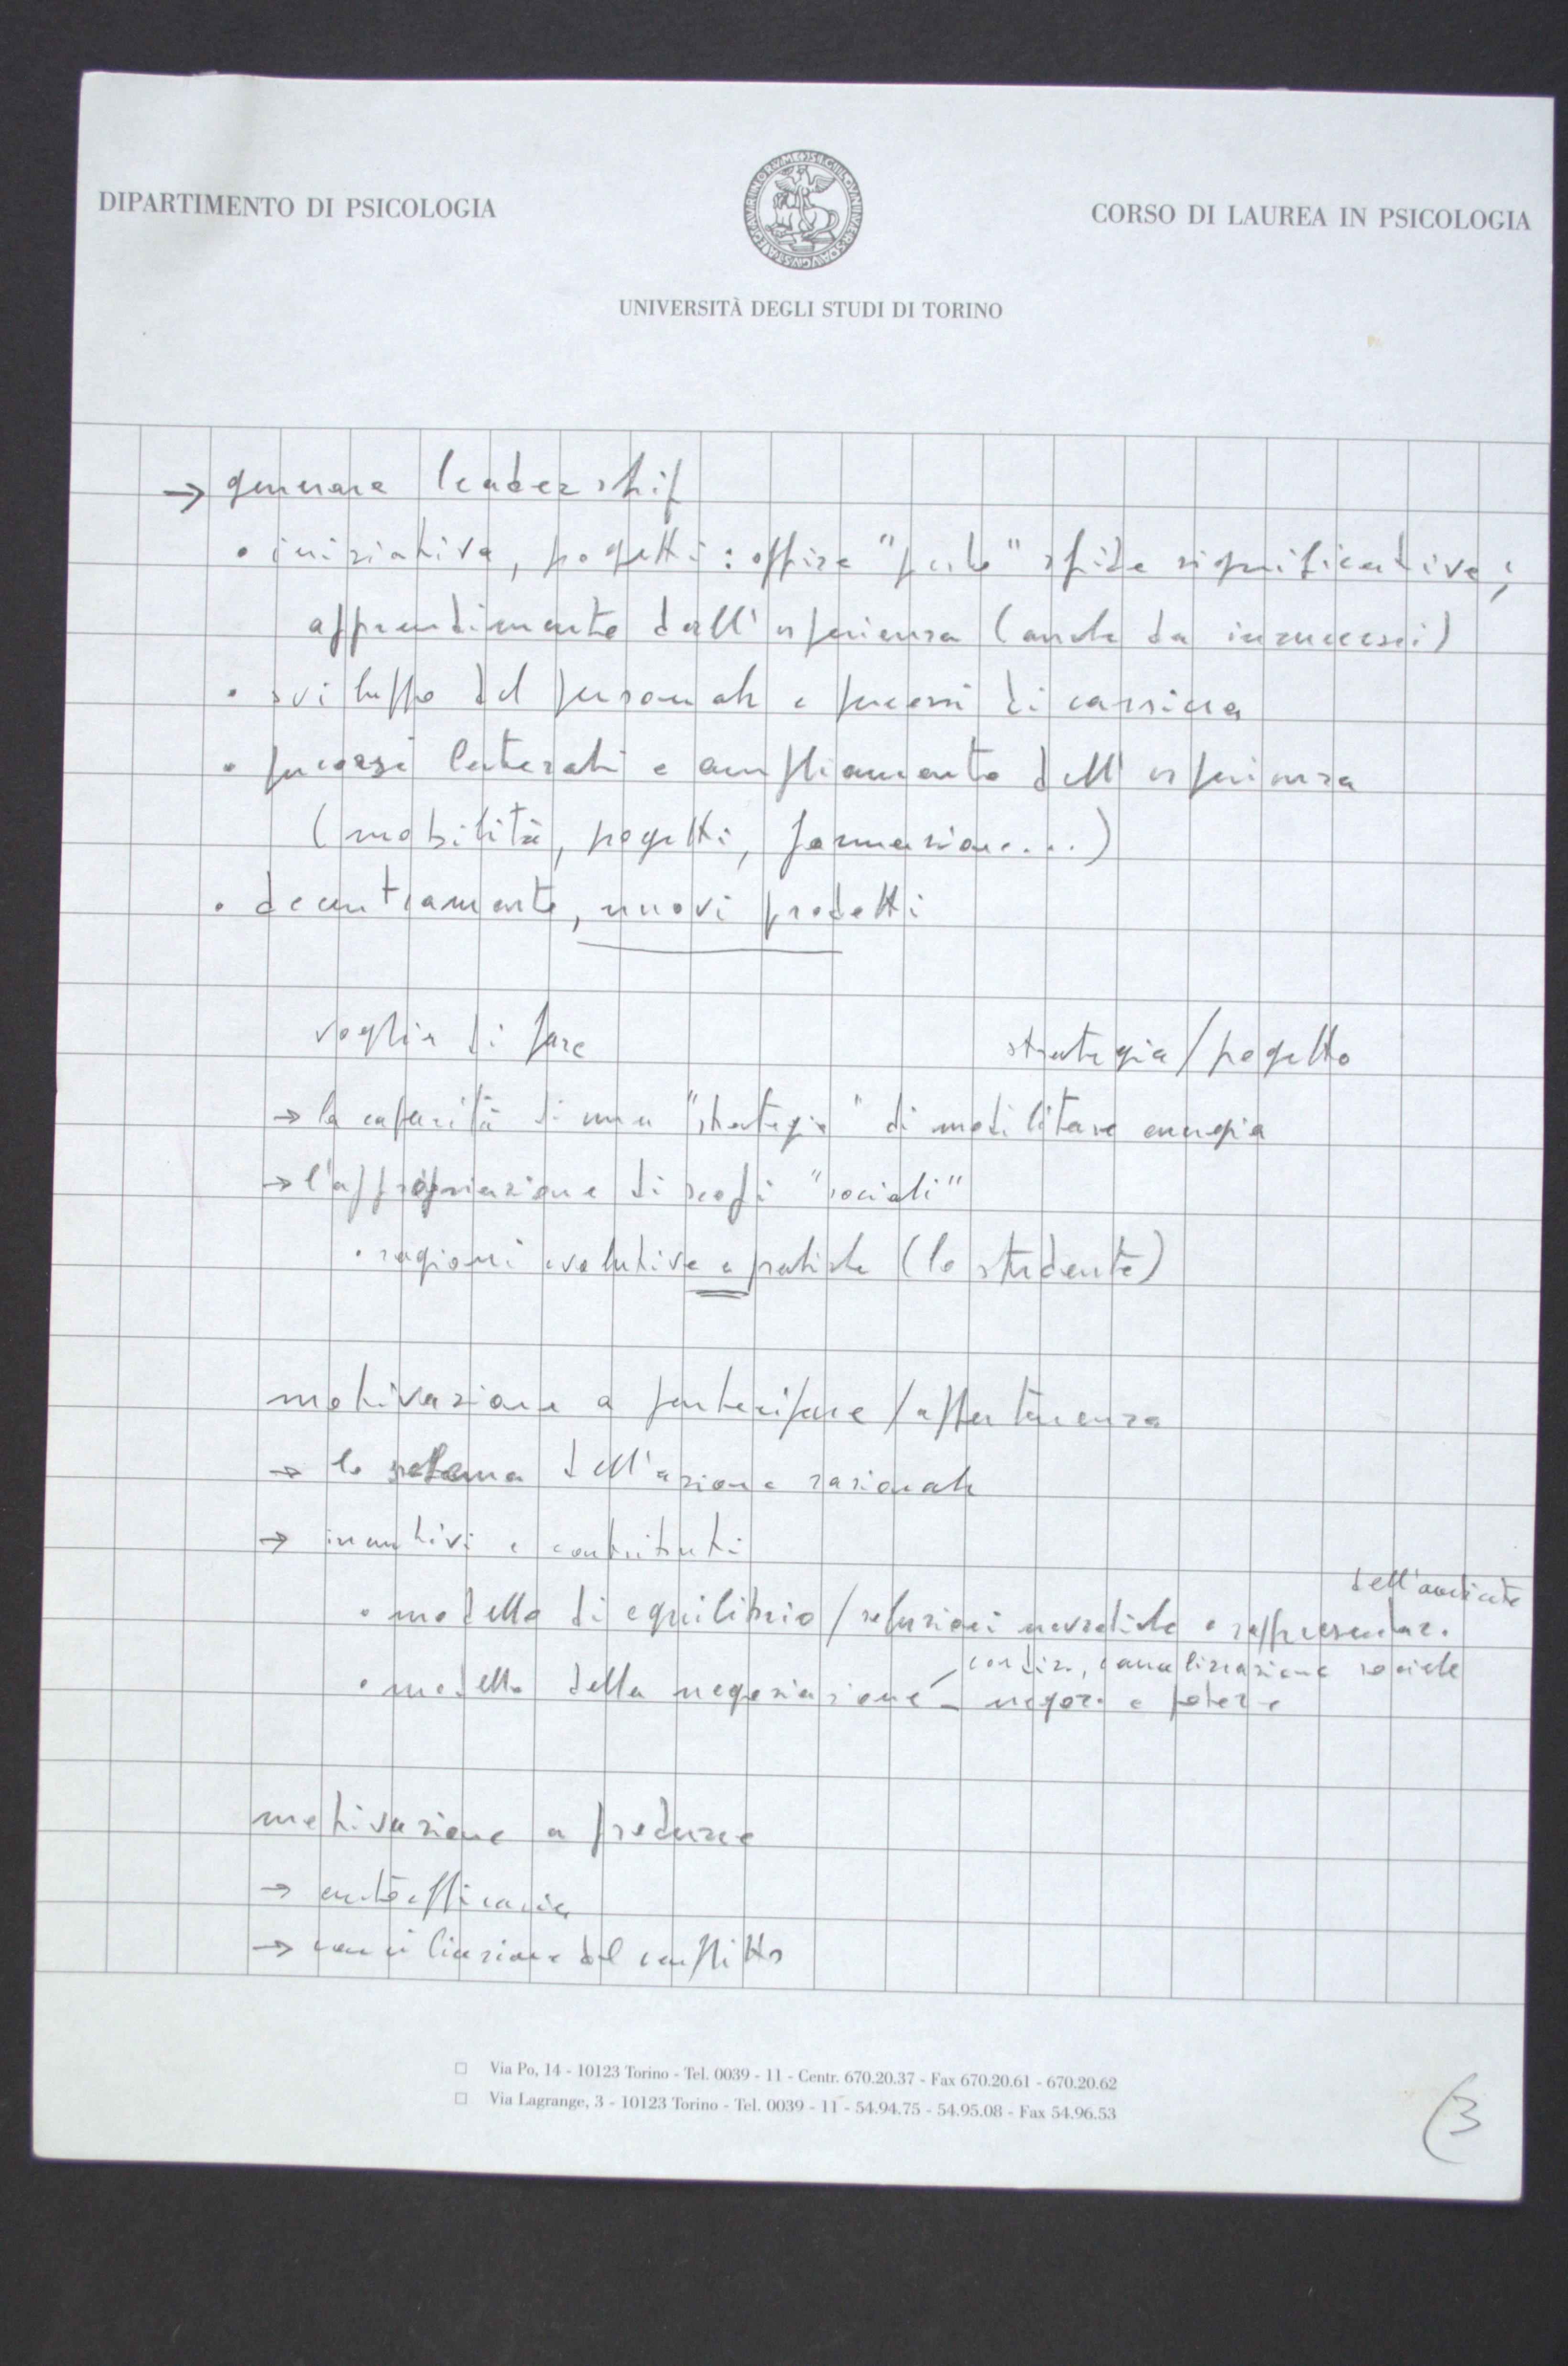 DIPARTIMENTO DI PSICOLOGIA
CORSO DI LAUREA IN PSICOLOGIA
UNIVERSITÀ DEGLI STUDI DI TORINO
→ generare leadership
• iniziativa, progetti: offrire "perle" sfide significative;
apprendimento dall'esperienza (anche da insuccessi)
• sviluppo del personale e percorsi di carriera
• percorsi laterali e ampliamento dell'esperienza
(mobilità, progetti, formazione...)
• decentramento, nuovi prodotti
voglia di fare
strategia/progetto
→ la capacità di una "strategia" di mobilitare energia
→ l'appropriazione di scopi "sociali"
• ragioni evolutive e pratiche (lo studente)
motivazione a partecipare/appartenenza
→ lo schema dell'azione razionale
→ incentivi e contributi
dell'
• modello di equilibrio/relazioni e rappresentaz.
condiz., canalizzazione sociale
• modello della negoziazione – negoz. e potere
motivazione a produrre
→ autoefficacia
→ conciliazione del conflitto
Via Po, 14 - 10123 Torino - Tel. 0039 - 11 - Centr. 670.20.37 - Fax 670.20.61 - 670.20.62
Via Lagrange, 3 - 10123 Torino - Tel. 0039 - 11 - 54.94.75 - 54.95.08 - Fax 54.96.53
(3